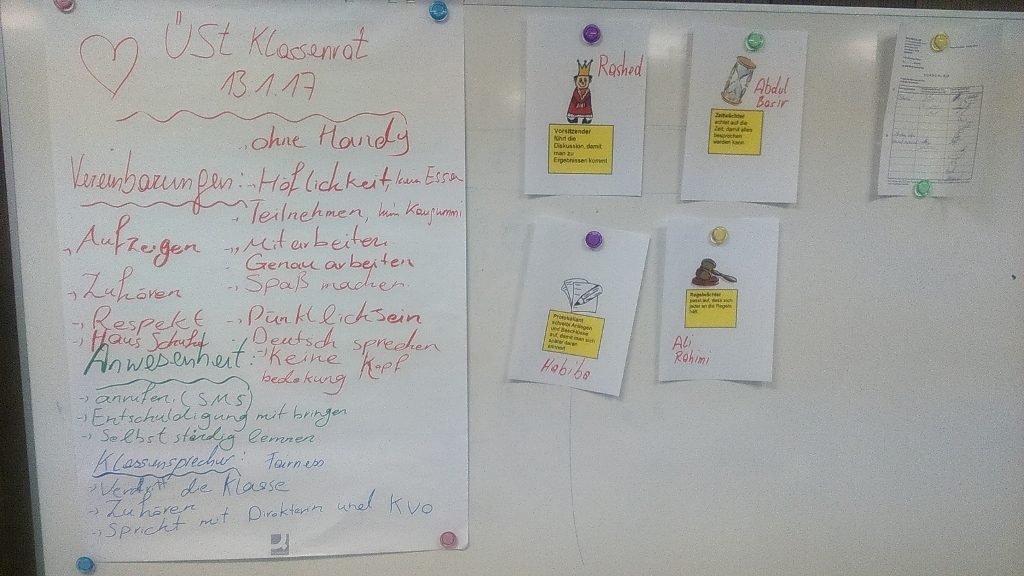 ÜSt Klassenrat
13.1.17
ohne Handy
Vereinbarungen: Höflichkeit, kein Essen
Teilnehmen, kein Kaugummi
Aufzeigen
Mitarbeiten
Genau arbeiten
Zuhören
Spaß machen
Respekt
Pünklichsein
Hausschuhe
Deutsch sprechen
Anwesenheit:
Keine Kopf
bedekung
anrufen (SMS)
Entschuldigung mit bringen
Selbst ständig lernnen
Klassensprecher: Fairness
die Klasse
Zuhören
Spricht mit Direktorin und KVO
Rashed
Vorsitzender
führt die
Diskussion, damit
man zu
Ergebnissen kommt
Abdul
Basir
Zeitwächter
achtet auf die
Zeit, damit alles
besprochen
werden kann
Protokollant
schreibt Anliegen
und Beschlüsse
auf, damit man sich
später daran
erinnert
Habiba
Regelwächter
passt auf, dass sich
jeder an die Regeln
hält
Ali
Rahimi